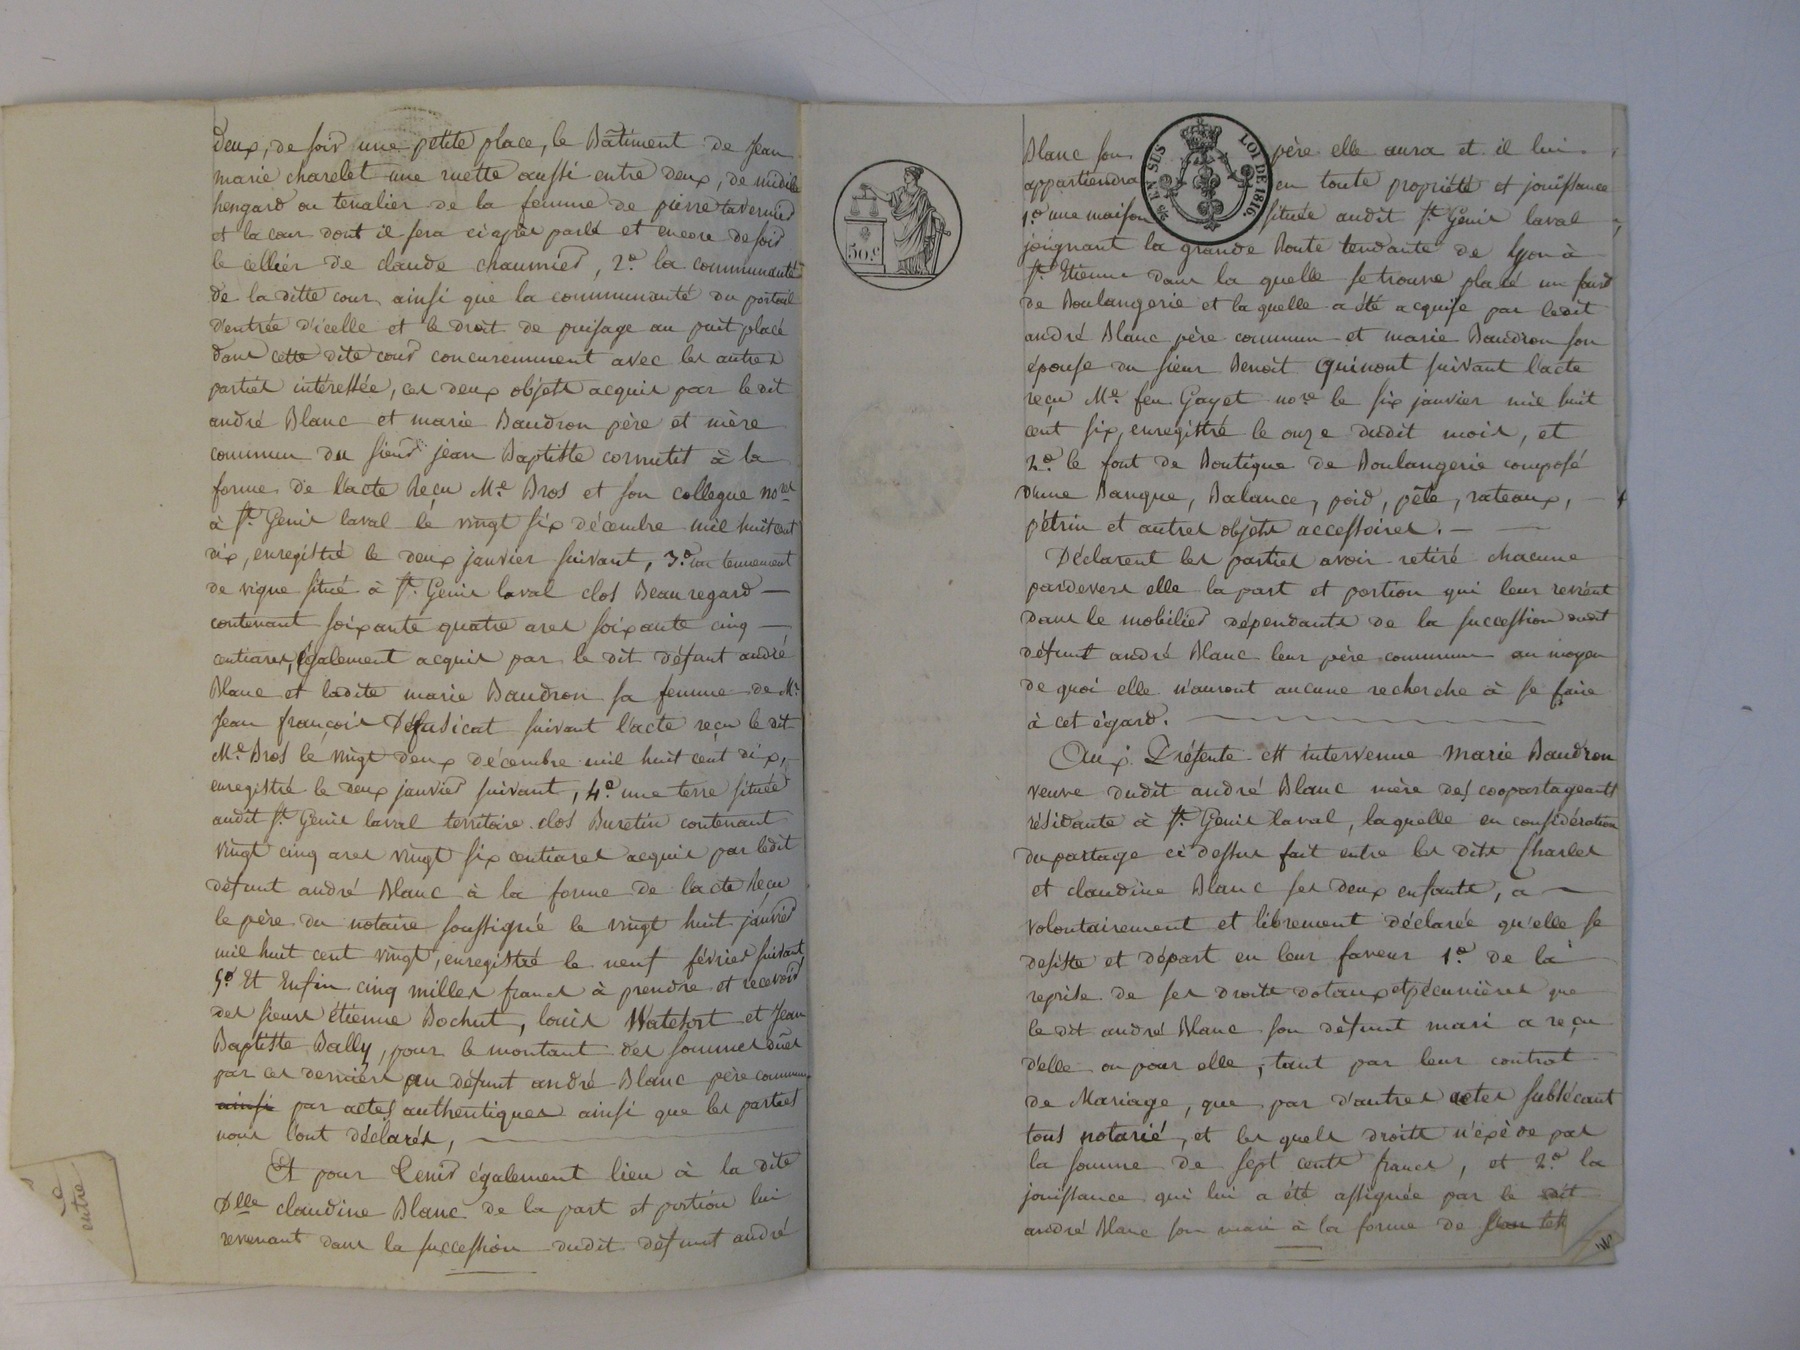 deux, de soir une petite place, le Bâtiment de Jean
marie charelet une ruette aussi entre deux, de midi le
hengard ou tenalier de la femme de pierre tavernier
et la cour dont il sera ci après parlé et encore de soir
le cellier de claude chaumier, 2.º la communauté
de la ditte cour ainsi que la communauté du portail
d'entrée d'icelle et le droit de puisage au puit placé
dans cette dite cour concuremment avec les autres
parties intéressée, ces deux objets acquis par le dit
andré Blanc et marie Baudron père et mère
commun du sieur jean Baptiste cornutit à la
forme de l'acte Reçu Mᵉ Bros et son collegue noʳᵉˢ
à Sᵗ Genis laval le vingt six décembre mil huit cent
dix, enregistré le deux janvier suivant, 3.º un tennement
de vigne situé à Sᵗ. Genis laval clos Beauregard —
contenant soixante quatre ares soixante cinq —
centiares, également acquis par le dit défunt andré
Blanc et ladite marie Baudron sa femme de Mʳ
Jean françois suivant l'acte reçu le dit
Mᵉ Bros le vingt deux décembre mil huit cent dix,
enregistré le deux janvier suivant, 4.º une terre située
audit Sᵗ Genis laval territoire clos Buretin contenant
vingt cinq ares vingt six centiares acquis par ledit
défunt andré Blanc à la forme de l'acte Reçu
le père du notaire soussigné le vingt huit janvier
mil huit cent vingt, enregistré le neuf février suivant
5º Et Enfin cinq milles francs à prendre et recevoir
des sieurs étienne Bochut, louis Watefort et Jean
Baptiste Bally, pour le montant des sommes dûes
par ces derniers au défunt andré Blanc père commun
ainsi par actes authentiques ainsi que les parties
nous l'ont déclarés, —
Et pour Tenir également lieu à la dite
Dlle claudine Blanc de la part et portion lui
revenant dans la succession dudit défunt andré
50 c
Blanc son père elle aura et il lui
appartiendra en toute propriété et jouissance
1.º une maison située audit Sᵗ Genis laval
joignant la grande Route tendante de lyon à
Sᵗ. Etienne dans la quelle se trouve placé un fond
de Boulangerie et la quelle a été acquise par ledit
andré Blanc père commun et marie Baudron son
épouse du sieur Benoît Quinont suivant l'acte
reçu Mᵉ feu Gayet noʳᵉ le six janvier mil huit
cent six, enregistré le onze dudit mois, et
2.º le font de Boutique de Boulangerie composé
d'une Banque, Balance, poid, pêle, rateaux, —
pétrin et autres objets accessoires. —
Déclarent les parties avoir retiré chacune
pardevers elle la part et portion qui leur revient
dans le mobilier dépendants de la succession dudit
défunt andré Blanc leur père commun au moyen
de quoi elle n'auront aucune recherche à se faire
à cet égard. —
Aux Présente est intervenue Marie Baudron
veuve dudit andré Blanc mère des coopartageants
résidante à Sᵗ. Genis laval, laquelle en considération
du partage ci dessus fait entre les dits Charles
et claudine Blanc ses deux enfants, a —
volontairement et librement déclarée qu'elle se
desiste et départ en leur faveur 1.º de la
reprise de ses droits dotaux et pécunières que
le dit andré Blanc son défunt mari a reçu
d'elle ou pour elle, tant par leur contrat
de Mariage, que par d'autres actes subsécant
tous notarié, et les quels droits n'exède pas
la somme de sept cents francs, et 2.º la
jouissance qui lui a été assignée par le dit
andré Blanc son mari à la forme de
SES
LOI DE 1816.
entre